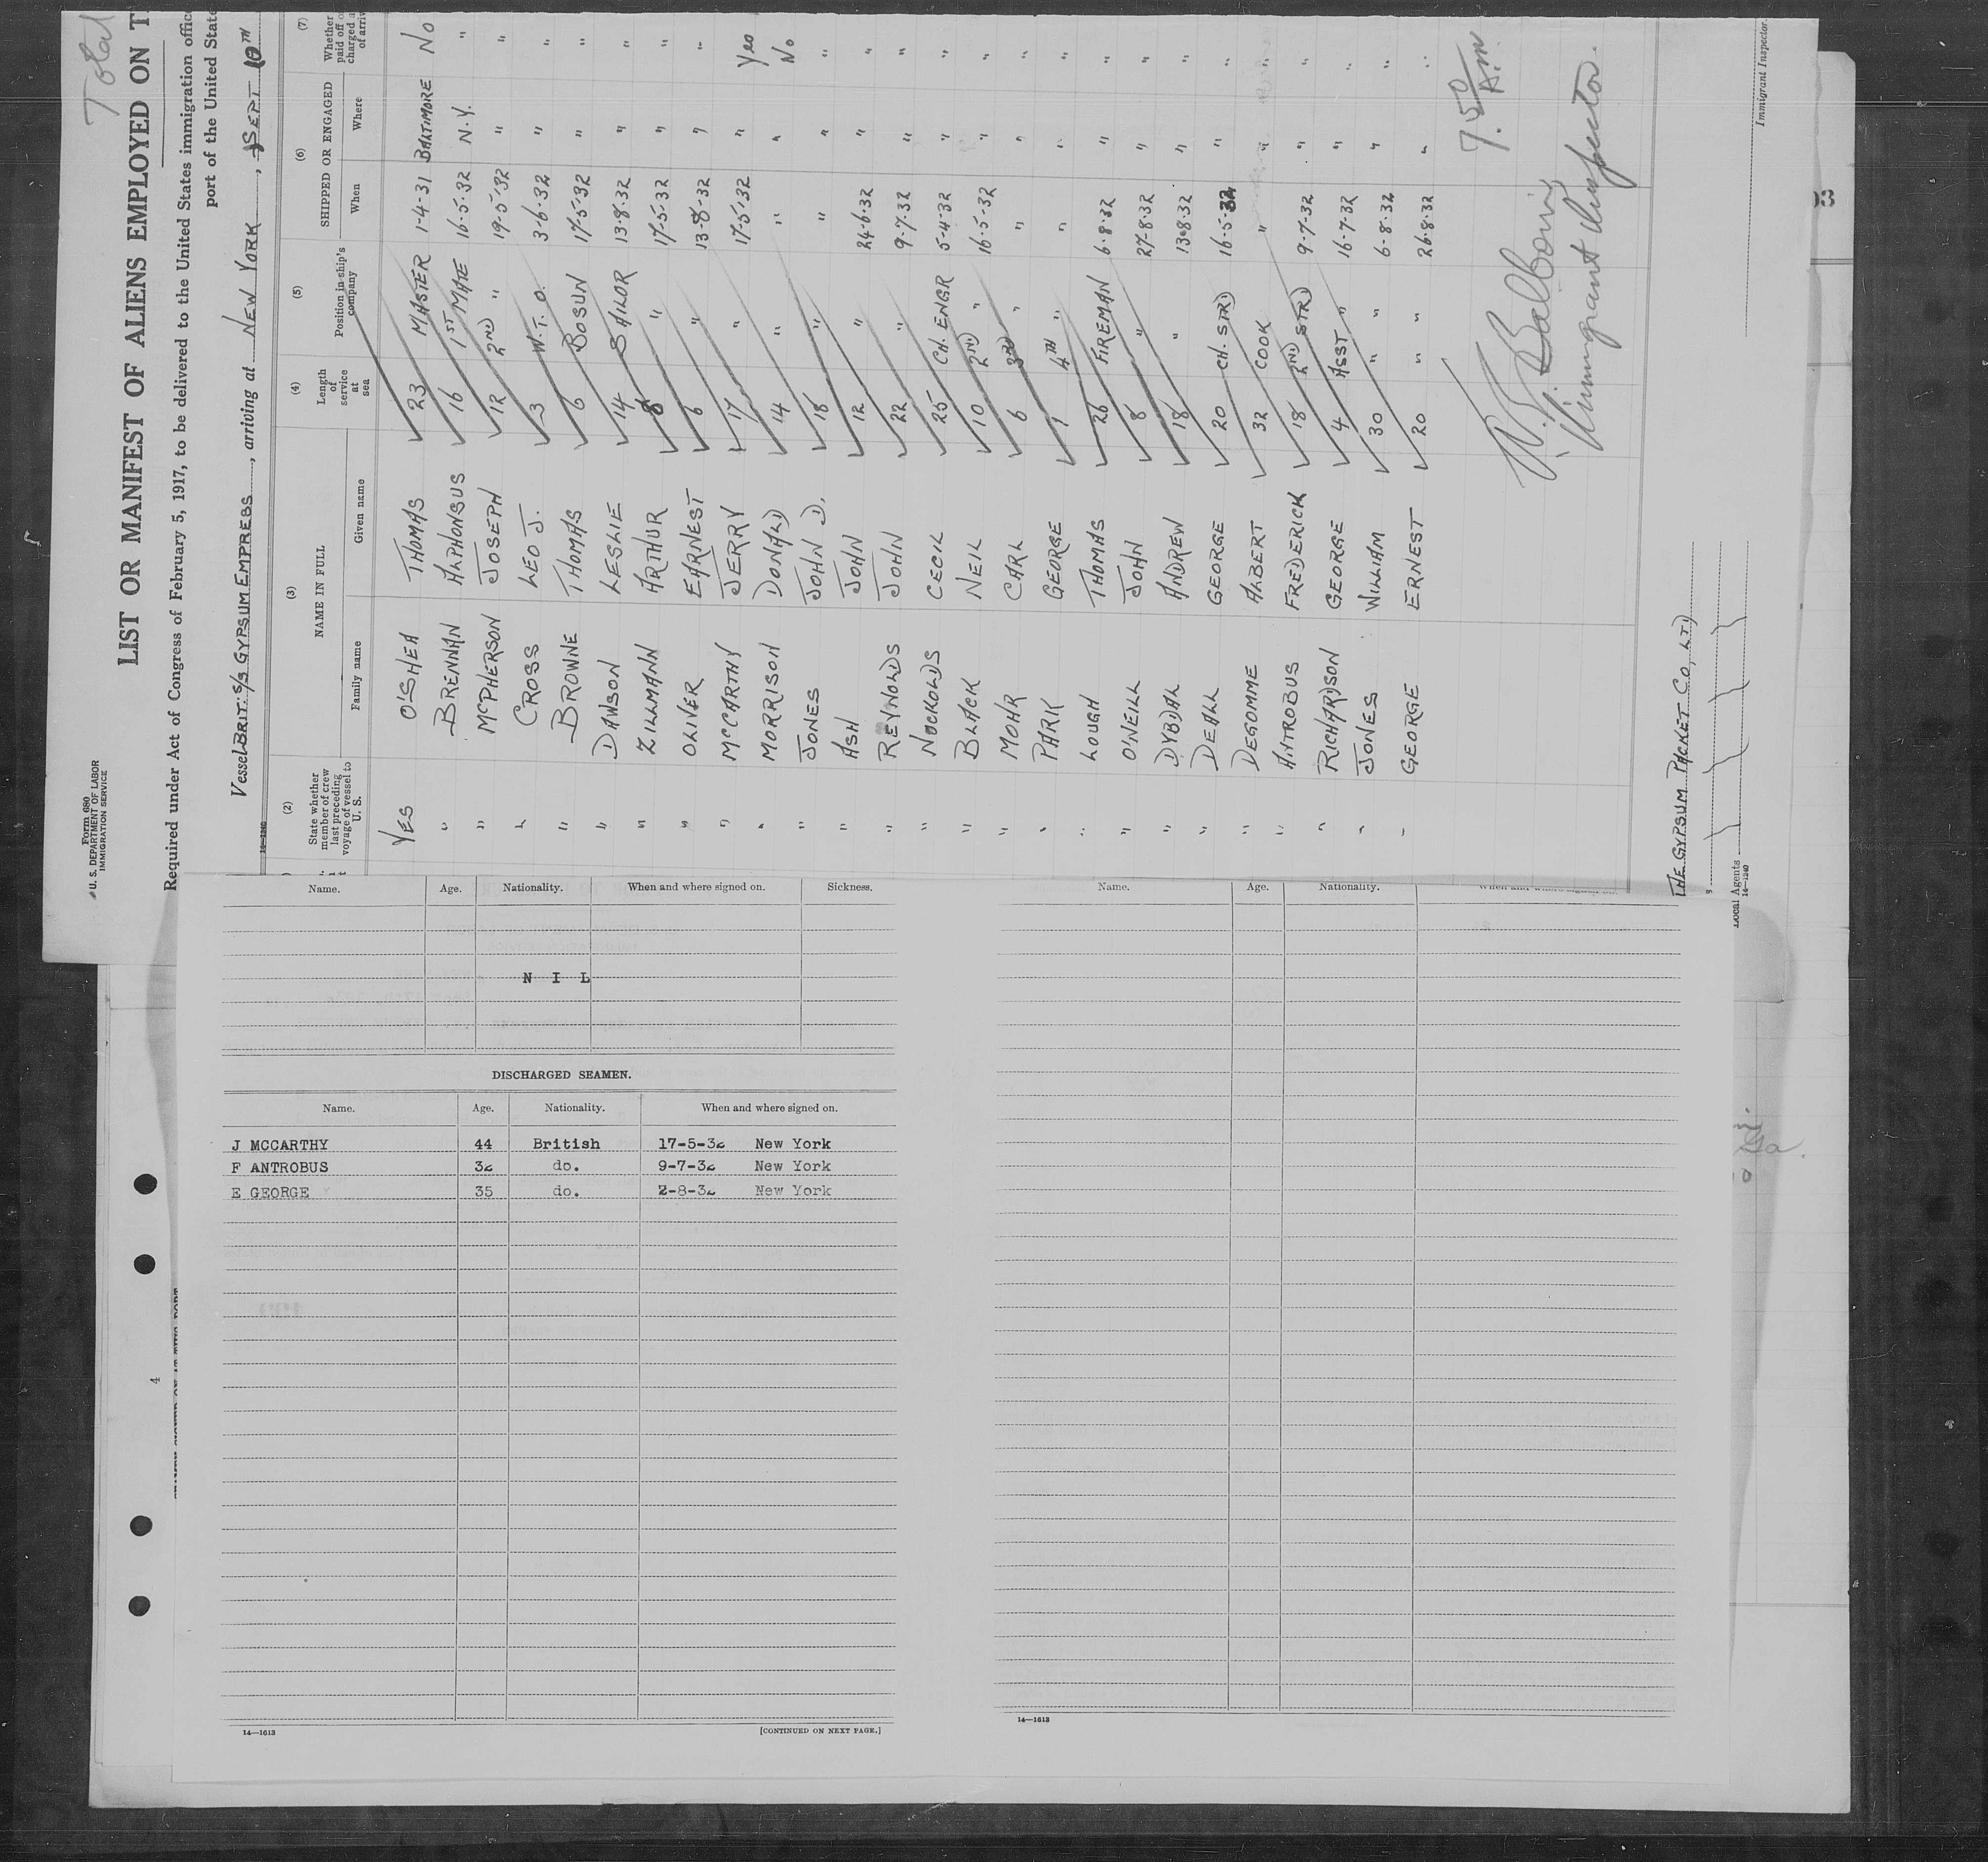 Total
Form 680
U. S. DEPARTMENT OF LABOR
IMMIGRATION SERVICE
LIST OR MANIFEST OF ALIENS EMPLOYED ON T
Required under Act of Congress of February 5, 1917, to be delivered to the United States immigration offic
port of the United State
Vessel BRIT. S/S GYPSUM EMPRESS, arriving at NEW YORK, SEPT 10TH
14—1240
(2) (3) (4) (5) (6) (7)
State whether member of crew last preceding voyage of vessel to U. S.
NAME IN FULL
Family name Given name
Length of service at sea
Position in ship's company
SHIPPED OR ENGAGED
When Where
Whether paid off o charged a of arriv
YES O'SHEA THOMAS 23 MASTER 1-4-31 BALTIMORE NO
" BRENNAN ALPHONSUS 16 1ST MATE 16-5-32 N.Y. "
" MCPHERSON JOSEPH 12 2ND " 19-5-32 " "
" CROSS LEO J. 3 W.T.O. 3-6-32 " "
" BROWNE THOMAS 6 BOSUN 17-5-32 " "
" DAWSON LESLIE 14 SAILOR 13-8-32 " "
" ZILLMANN ARTHUR 8 " 17-5-32 " "
" OLIVER EARNEST 6 " 13-8-32 " "
" MCCARTHY JERRY 17 " 17-5-32 " Yes
" MORRISON DONALD 14 " " " No
" JONES JOHN D. 18 " " " "
" ASH JOHN 12 " 24-6-32 " "
" REYNOLDS JOHN 22 " 9-7-32 " "
" NOCKOLDS CECIL 25 CH. ENGR 5-4-32 " "
" BLACK NEIL 10 2ND " 16-5-32 " "
" MOHR CARL 6 3RD " " " "
" PARK GEORGE 1 4TH " " " "
" LOUGH THOMAS 26 FIREMAN 6-8-32 " "
" O'NEILL JOHN 8 " 27-8-32 " "
" DYBDAL ANDREW 18 " 13-8-32 " "
" DEALL GEORGE 20 CH. STRD 16-5-32 " "
" DEGOMME ALBERT 32 COOK " " "
" ANTROBUS FREDERICK 18 2ND STRD 9-7-32 " "
" RICHARDSON GEORGE 4 ASST " 16-7-32 " "
" JONES WILLIAM 30 " " 6-8-32 " "
" GEORGE ERNEST 20 " " 26-8-32 " "
7.50 A.M
Immigrant Inspector.
Immigrant Inspector.
THE GYPSUM PACKET CO, LTD
Local Agents
14—1240
Name. Age. Nationality. When and where signed on. Sickness.
N I L
DISCHARGED SEAMEN.
Name. Age. Nationality. When and where signed on.
J MCCARTHY 44 British 17-5-32 New York
F ANTROBUS 32 do. 9-7-32 New York
E GEORGE 35 do. 2-8-32 New York
14—1613 [CONTINUED ON NEXT PAGE.]
Name. Age. Nationality.
14—1613
4